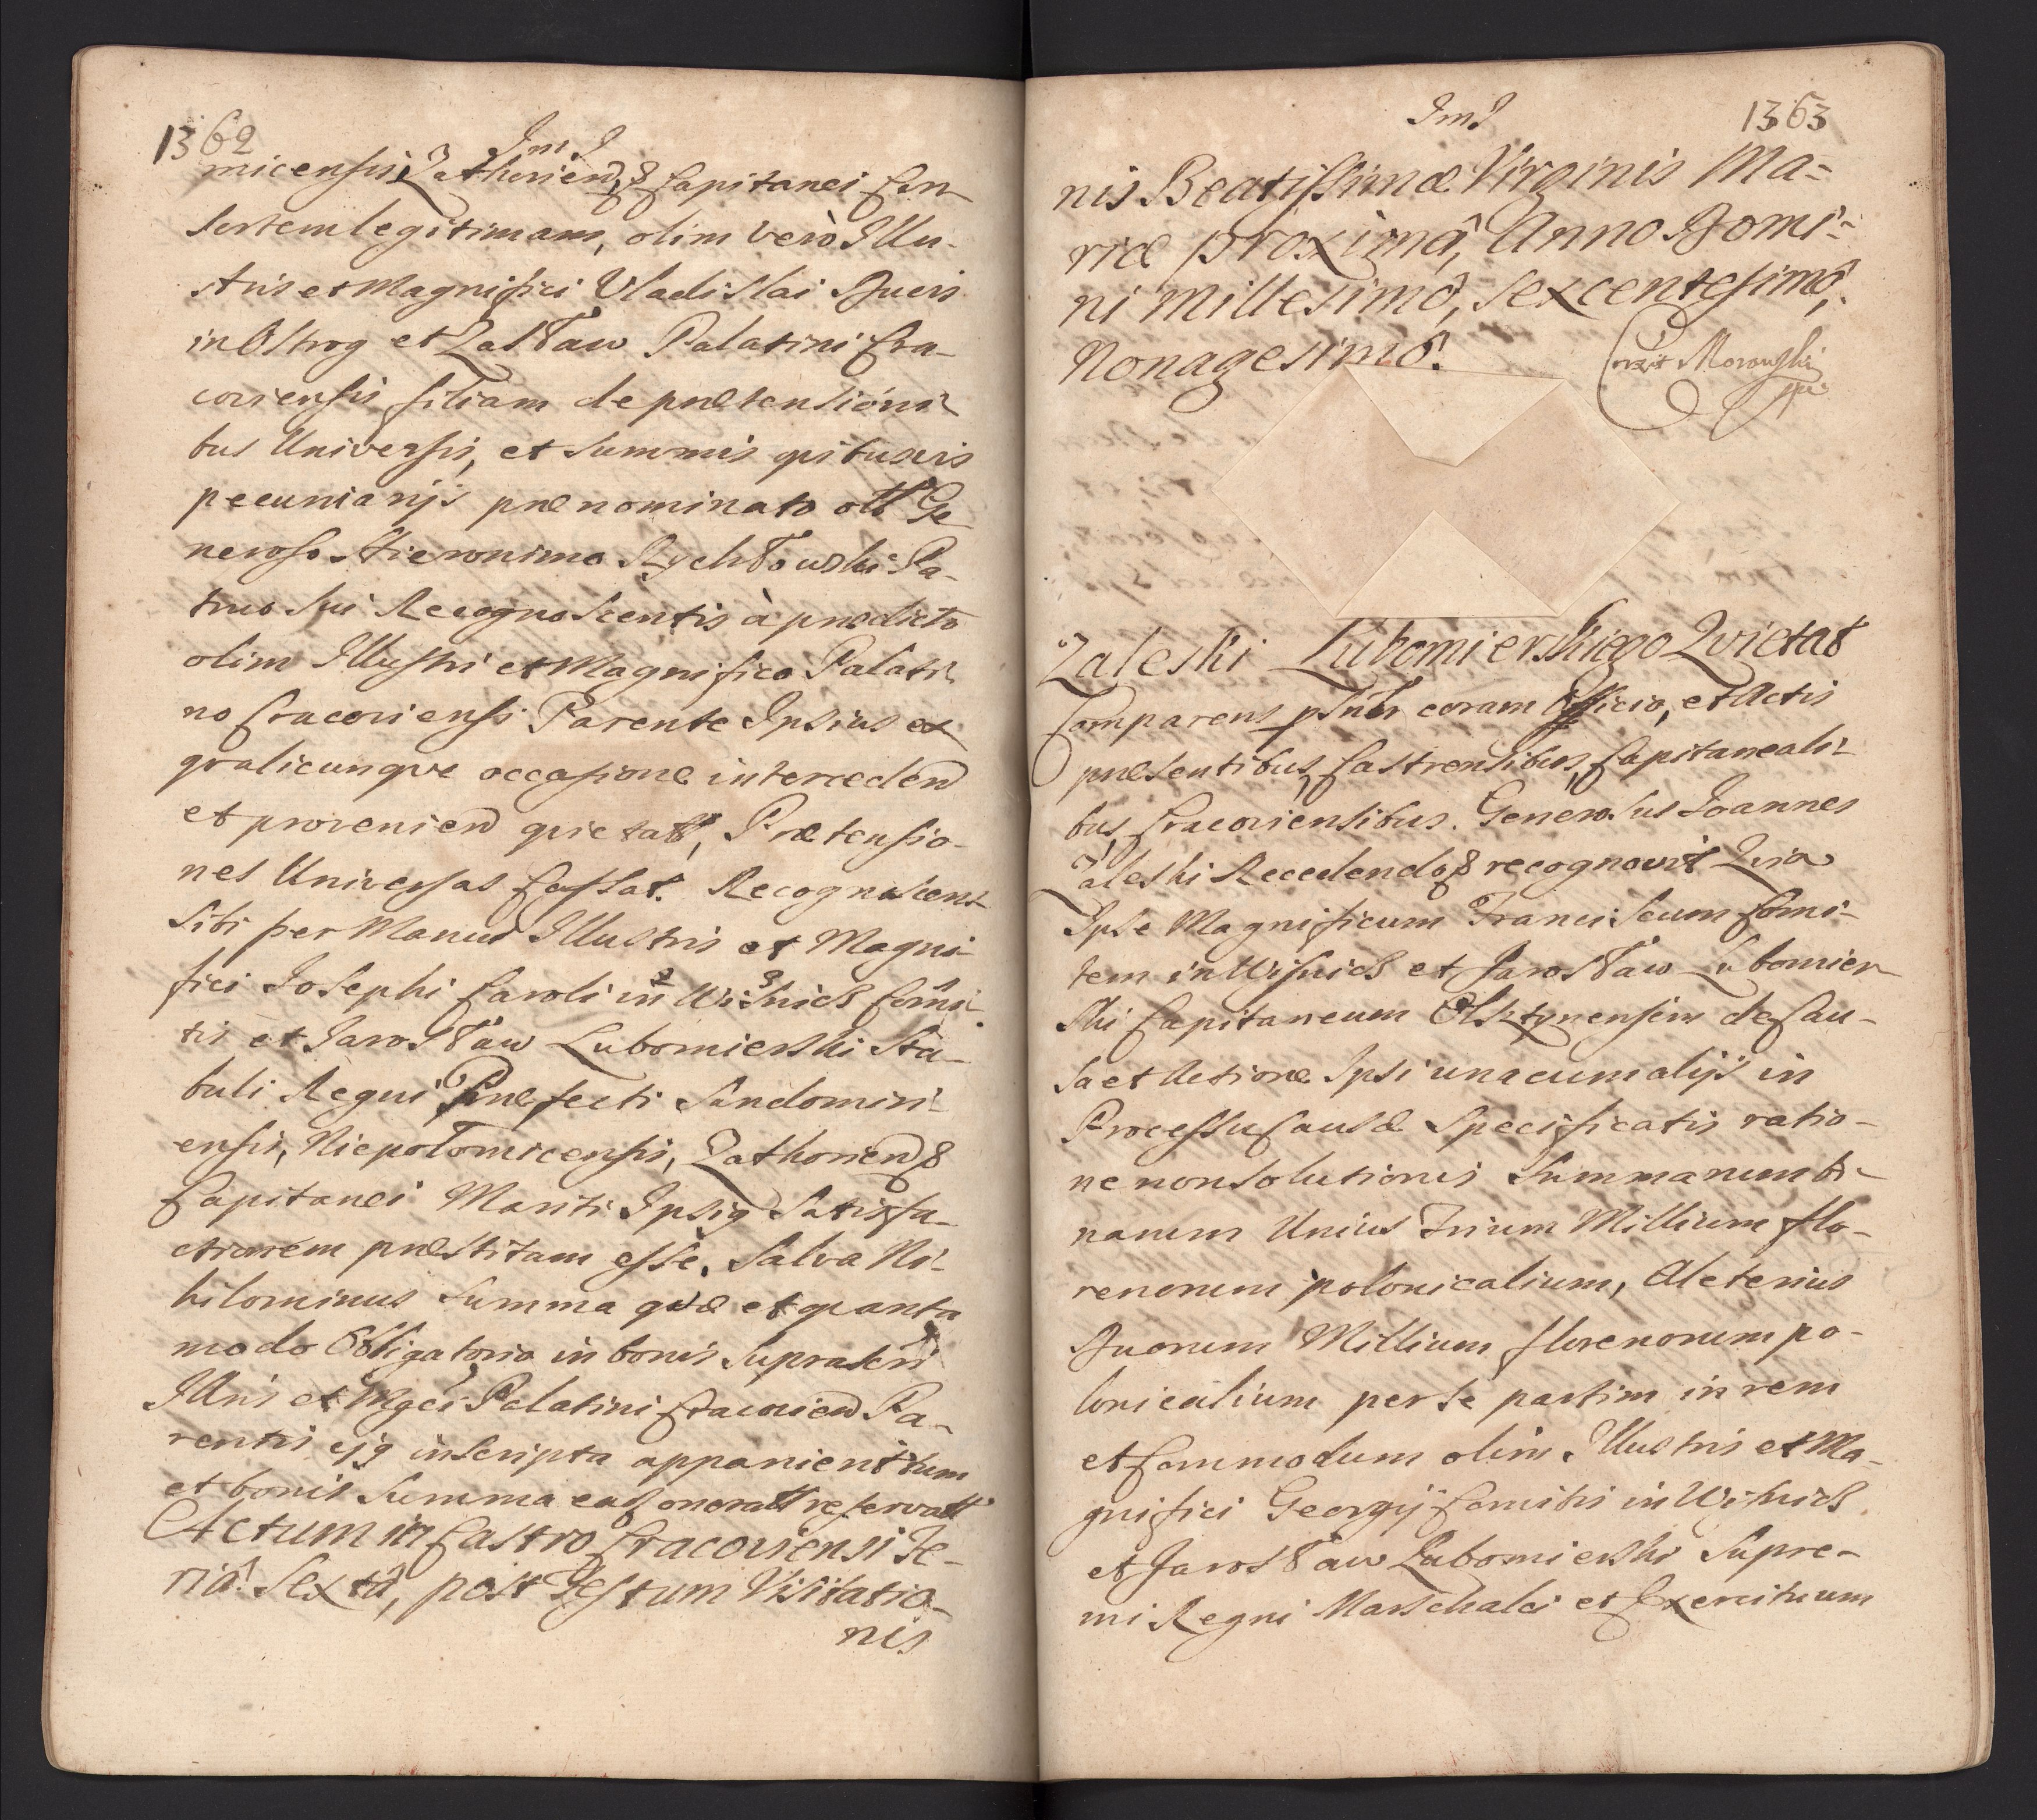 1362
Im̃
micensis, Zathorien̄, & Capitanei Con-
sortem legitimam, olim verò Illu-
stris et Magnifici Vladislai Ducis
in Ostrog et Zasław Palatini Cra-
coviensis filiam de prætensioni-
bus Universis, et Summis quibusvis
pecuniarijs prænominato olt̃ Ge-
neroso Hieronimo Rychłowski Pa-
truo sui Recognoscentis à prædicto
olim Illustri et Magnifico Palati-
no Cracoviensi Parente Ipsius ex
qualicunque occasione interceden̄
et provenien̄ quietatt, Prætensio-
nes Universas Cassat. Recognoscens
sibi per Manus Illustris et Magni-
fici Josephi Caroli in Wisnicz Comi-
tis et Jarosław Lubomierski Sta-
buli Regni Præfecti Sandomiri-
ensis, Niepołomicensis, Zathorien̄ &
Capitanei Mariti Ipsiq Satisfa-
ctionem præstitam esse. Salva Ni-
hilominus Summa quæ et quanta
modo Obligatorio in bonis suprascri
Illris et Mgci Palatini Cracovien̄ Pa-
rentis ejq inscripta apparient tum
et bonis Summa eaq oneratt reservatt
Actum in Castro Cracoviensi Fe-
riâ Sextâ, post Festum Visitatio-
nis
Im̃
1363
nis Beatissimæ Virginis Ma-
riæ proximâ, Anno Domi-
ni Millesimô, Sexcentesimô,
Nonagesimô.
Correxit Morawski
mpa
Zaleski Lubomierskiego Qvietat
Comparens psñtr coram Officio, et Actis
præsentibus, Castrensibus, Capitaneali-
bus, Cracoviensibus. Generosus Joannes
Zaleski Recedendo & recognovit Quia
Ipse Magnificum Franciscum Comi-
tem in Wisnicz et Jarosław Lubomier-
ski Capitaneum Olsztynensem de Cau-
sa et Actione Ipsi una cum alijs in
Processu Causæ Specificatis ratio-
ne non solutionis Summarum bi-
narum Unius Trium Millium flo-
renorum polonicalium, Alterius
Duorum Millium florenorum po-
lonicalium per se partim in rem
et Commodum olim Illustris et Ma-
gnifici Georgij Comitis in Wisnicz
et Jarosław Lubomierski Supre-
mi Regni Marschalci et Exercituum